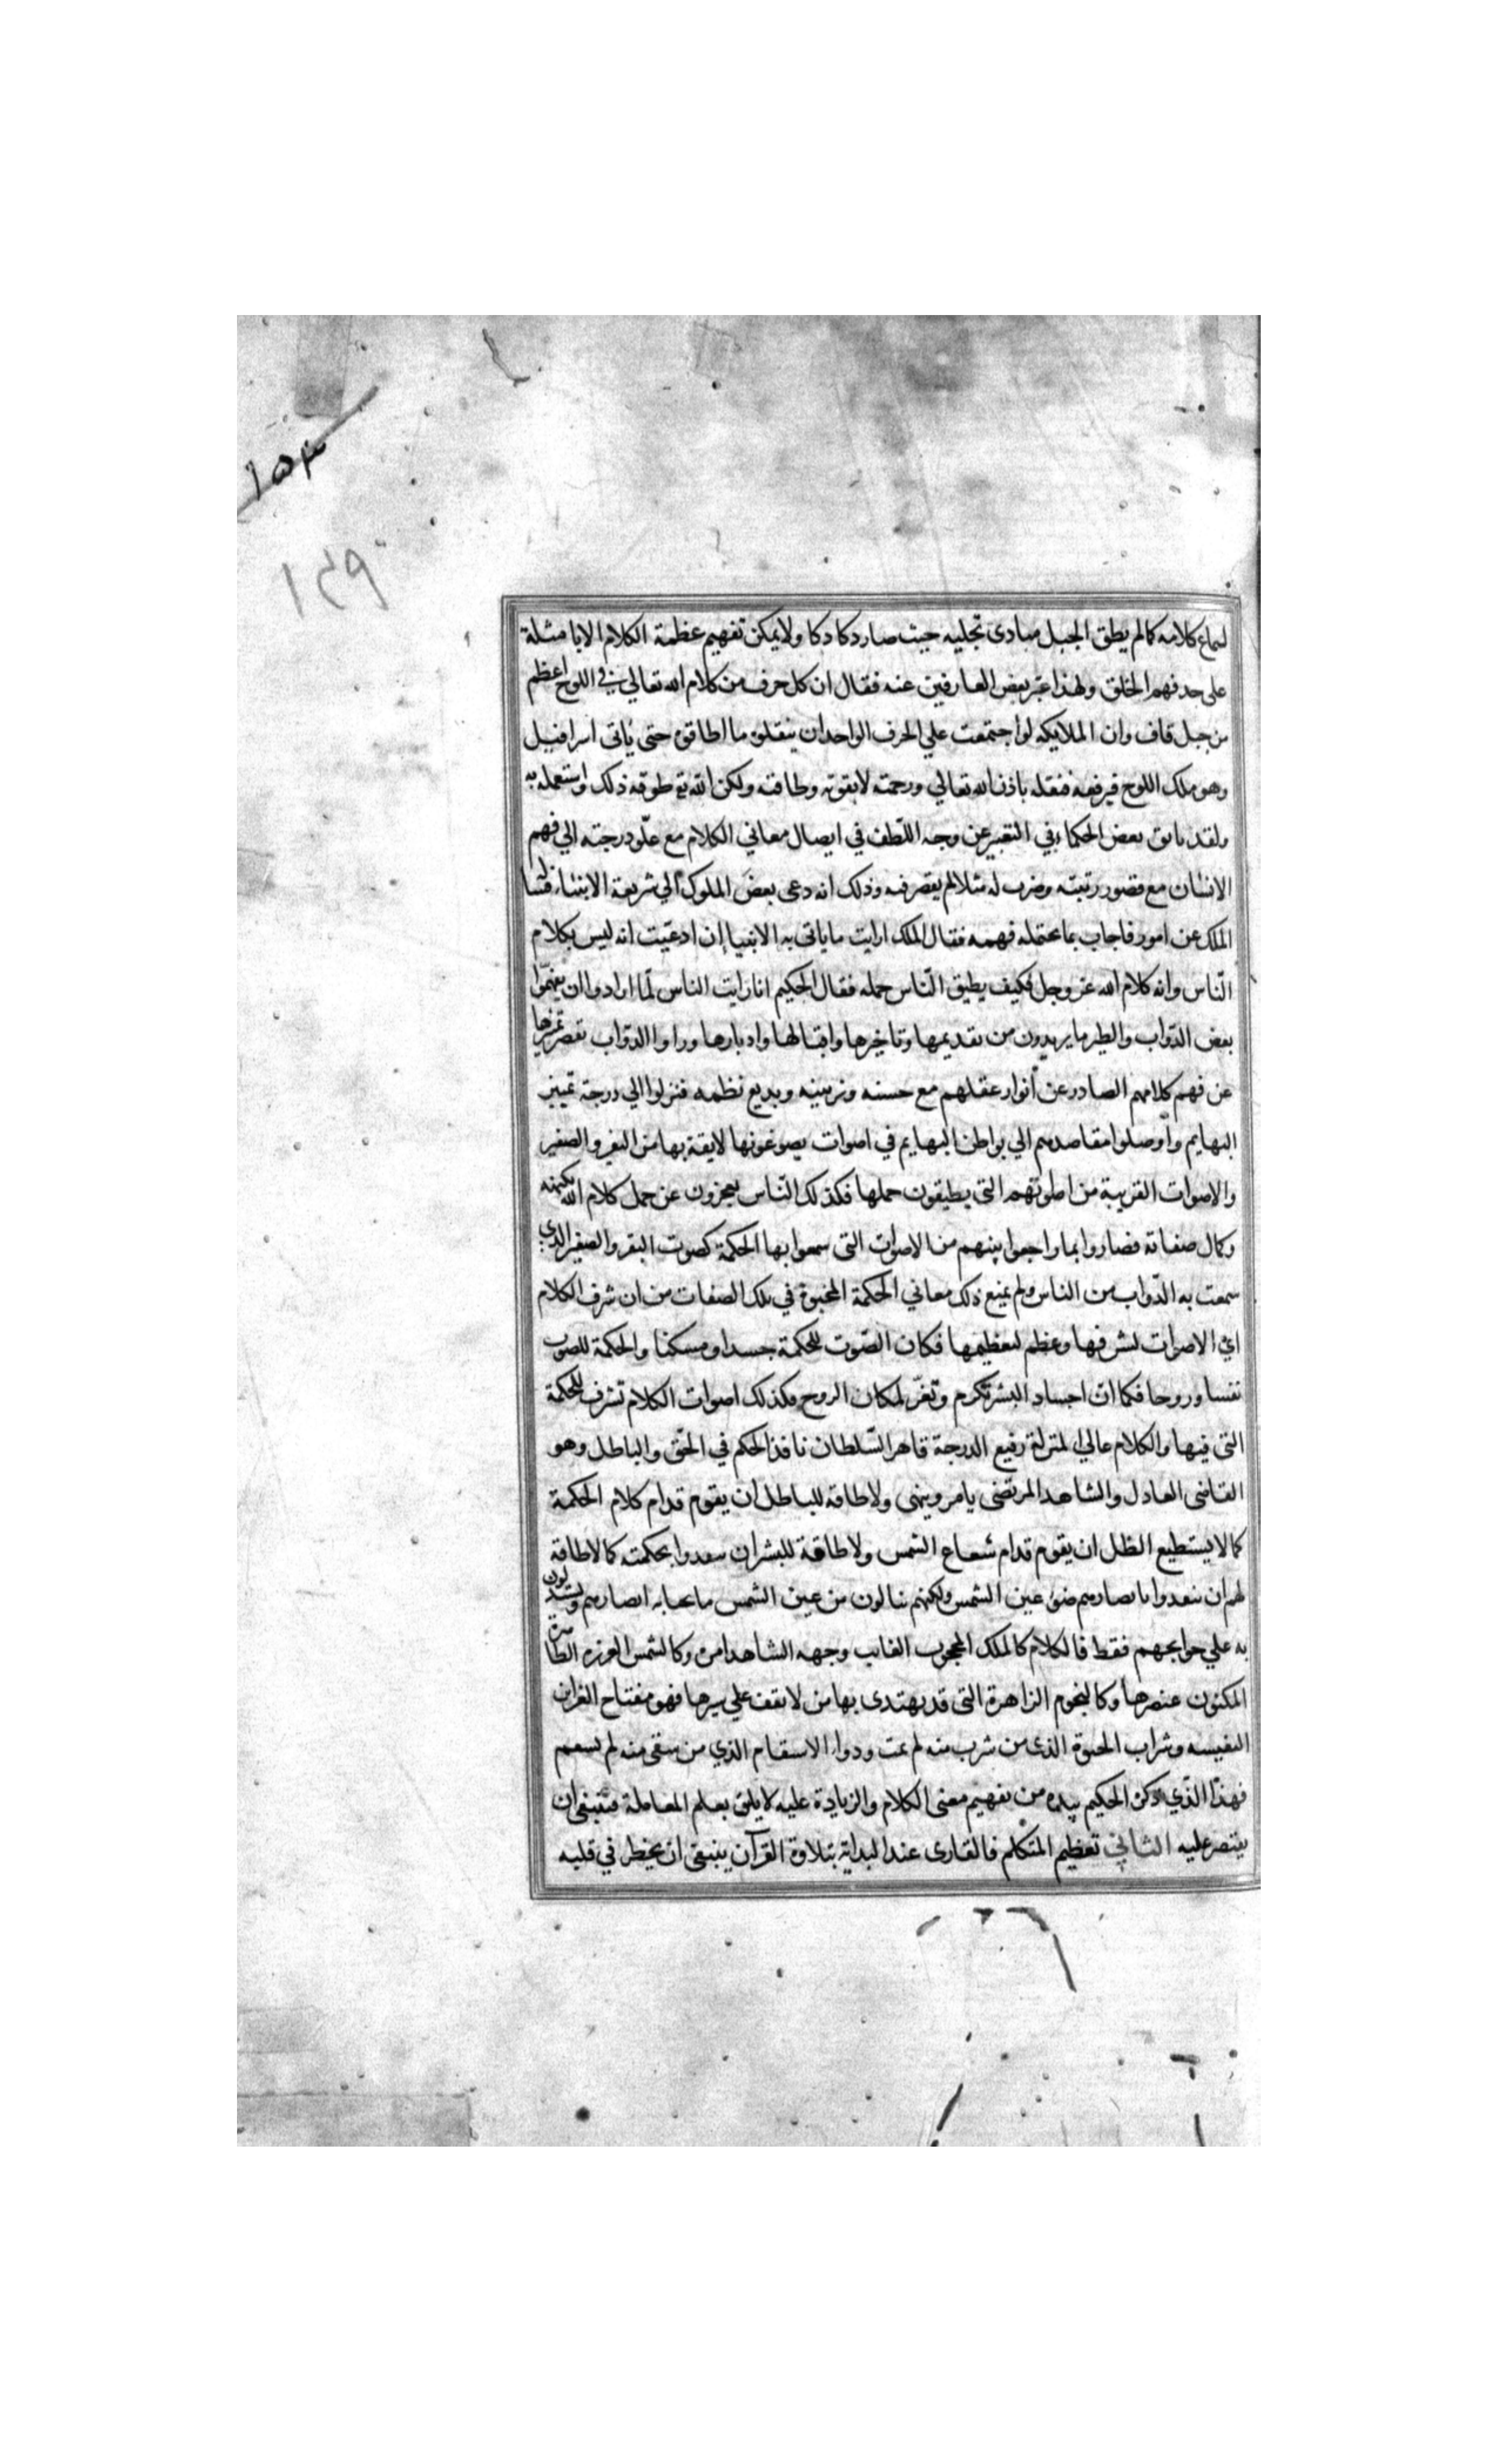 ١٥٣
١٤٩
لسماع كلامه كما لم يطق الجبل مبادى تجليه حيث صار دكا دكا ولا يمكن تفهيم عظمة الكلام الا بامثلة
على حد فهم الخلق ولهذا عبر بعض العارفين عنه فقال ان كل حرف من كلام الله تعالي في اللوح اعظم
من جبل قاف وان الملايكه لو اجتمعت علي الحرف الواحد ان ينقلوه ما اطاقوه حتى ياتى اسرافيل
وهو ملك اللوح فيرفعه فنقله باذن الله تعالي ورحمته لا بقوته وطاقته ولكن الله تع طوقه ذلك واستعمله به
ولقد تانق بعض الحكماء في التعبير عن وجه اللطف في ايصال معاني الكلام مع علو درجته الي فهم
الانسان مع قصور رتبته وضرب له مثلا لم يقصر فيه وذلك انه دعى بعض الملوك الي شريعة الانبياء فسال
الملك عن امور فاجاب بما يحتمله فهمه فقال الملك ارايت ما ياتى به الانبيا إن ادعيت انه ليس بكلام
الناس وانه كلام الله عز وجل فكيف يطيق الناس حمله فقال الحكيم انا رايت الناس لما ارادوا ان يفهموا
بعض الدواب والطير ما يريدون من تقديمها وتاخيرها واقبالها وادبارها وراوا الدواب تقصر تميزها
عن فهم كلامهم الصادر عن أنوار عقلهم مع حسنه وتزيينه وبديع نظمه فنزلوا الي درجة تمييز
البهايم واوصلوا مقاصدهم الي بواطن البهايم في اصوات يصوغونها لايقة بها من النقر والصفير
والاصوات القريبة من اصواتهم التى يطيقون حملها فكذلك الناس يعجزون عن حمل كلام الله بكنهه
وكمال صفاته فصاروا بما راجعوا بينهم من الاصوات التى سمعوا بها الحكمة كصوت النقر والصفير الذي
سمعت به الدواب من الناس ولم يمنع ذلك معاني الحكمة المخبوة في تلك الصفات من ان شرف الكلام
اي الاصوات لشرفها وعظم لتعظيمها فكان الصوت للحكمة جسدا ومسكنا والحكمة للصوت
نفسا وروحا فكما ان اجساد البشر تكرم وتعز لمكان الروح فكذلك اصوات الكلام تشرف للحكمة
التى فيها والكلام عالي المنزلة رفيع الدرجة قاهر السلطان نافذ الحكم في الحق والباطل وهو
القاضى العادل والشاهد المرتضى يامر وينهى ولا طاقه للباطل ان يقوم قدام كلام الحكمة
كما لا يستطيع الظل ان يقوم قدام شعاع الشمس ولا طاقة للبشر ان ينفدوا بحكمته كما لا طاقة
لهم ان ينفدوا بابصارهم ضوء عين الشمس ولكنهم ينالون من عين الشمس ما تحيا به ابصارهم ويستدلون
به علي حوايجهم فقط فالكلام كالملك المحجوب الغايب وجهه الشاهد امره وكالشمس العزيزه الظاهرة
المكنون عنصرها وكالنجوم الزاهرة التى قد يهتدى بها من لا يقف علي سيرها فهو مفتاح الخزاين
النفيسه وشراب الحيوة الذى من شرب منه لم يمت ودواء الاسقام الذي من سقى منه لم يسقم
فهذا الذي ذكره الحكيم نبذه من تفهيم معنى الكلام والزيادة عليه لا يليق بعلم المعاملة فينبغى ان
يقتصر عليه الثاني تعظيم المتكلم فالقارى عند البداية بتلاوة القرآن ينبغى ان يخطر في قلبه